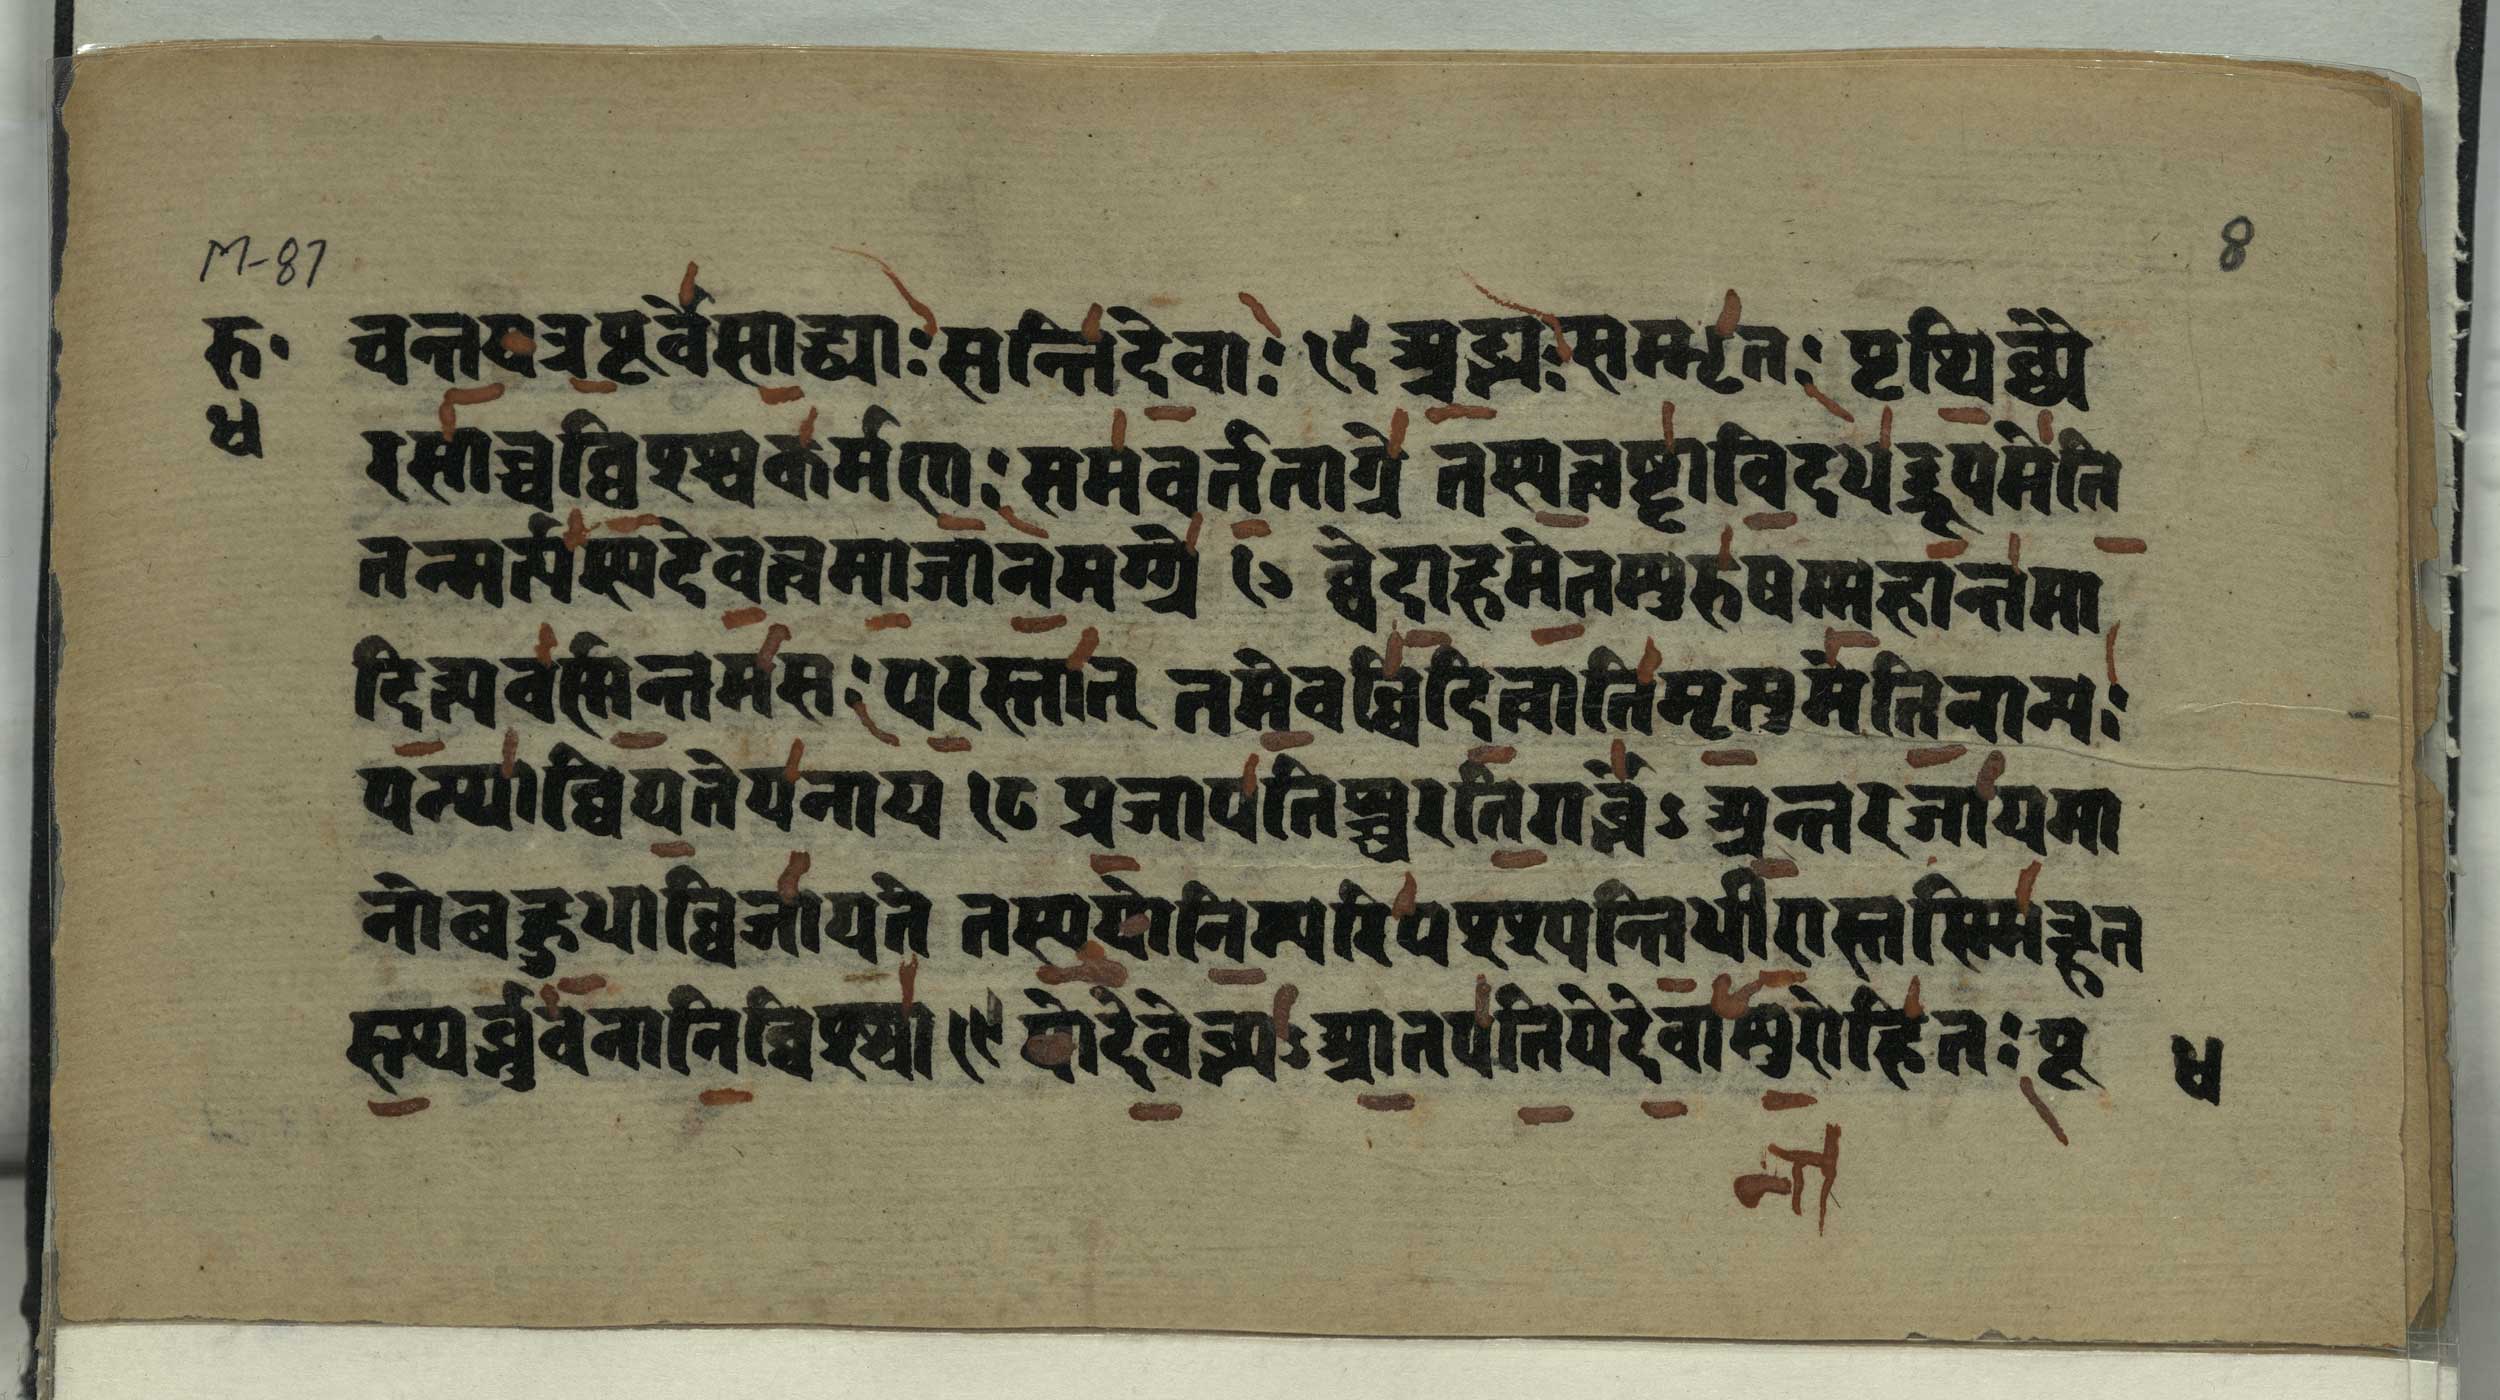 M-87
8
रु॰ चन्तयत्रपूर्वेसाद्ध्याःसन्तिदेवाः १६ अद्भ्यःसम्भृतः पृथिव्यै
४ रसाच्चव्विश्श्वकर्मणःसमवर्त्तताग्रे तस्यत्वष्टाविदधद्रूपमेति
तन्मर्त्यस्यदेवत्वमाजानमग्ग्रे १७ व्वेदाहमेतम्पुरुषम्महान्तमा
दित्यवर्णन्तमसःपरस्तात् तमेवव्विदित्वातिमृत्युमेतिनान्यः
पन्थाव्विद्यतेयनाय १८ प्रजापतिश्चरतिगर्ब्भेऽ अन्तरजायमा
नोबहुधाव्विजायते तस्ययोनिम्परिपश्श्यन्तिधीरास्तस्मिन्हत
स्त्थुर्ब्भुवनानिव्विश्श्वा १९ योदेवेब्भ्यऽआतपतियोदेवाम्पुरोहितः पू ४
ना